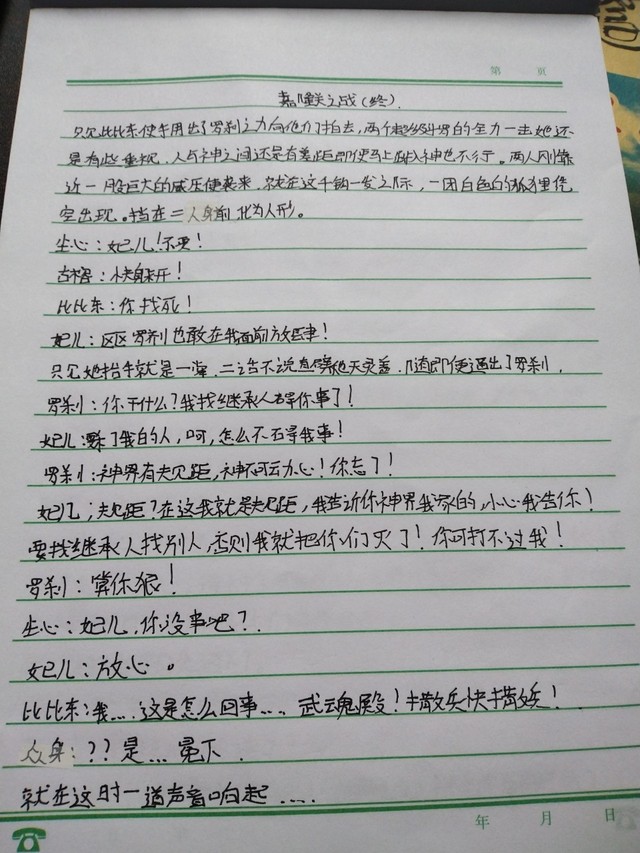 第 页
嘉陵关之战(终).
只见比比东便车用出了罗刹之力向他们拍去,两个超级斗罗的全力一击她还
是有些重视,人与神之间还是有差距即便马上踏入神也不行。两人刚靠
近一股巨大的威压便袭来,就在这千钧一发之际,一团白色的狐狸凭
空出现。挡在二人身前化为人形。
尘心:妃儿!不要!
古榕:快躲开!
比比东:你找死!
妃儿:区区罗刹也敢在我面前放肆!
只见她抬手就是一掌,二话不说直劈他天灵盖,随即便逼出了罗刹,
罗刹:你干什么?我找继承人碍你事了!
妃儿:动了我的人,呵,怎么不碍我事!
罗刹:神界有规矩,神不可动心!你忘了!
妃儿:规矩?在这我就是规矩,我告诉你神界我家的,小心我告你!
要找继承人找别人,否则我就把你们灭了!你可打不过我!
罗刹:算你狠!
尘心:妃儿,你没事吧?
妃儿:放心。
比比东:我....这是怎么回事....武魂殿!撤兵快撤兵!
众身:??是...冕下.
就在这时一道声音响起....
年 月 日